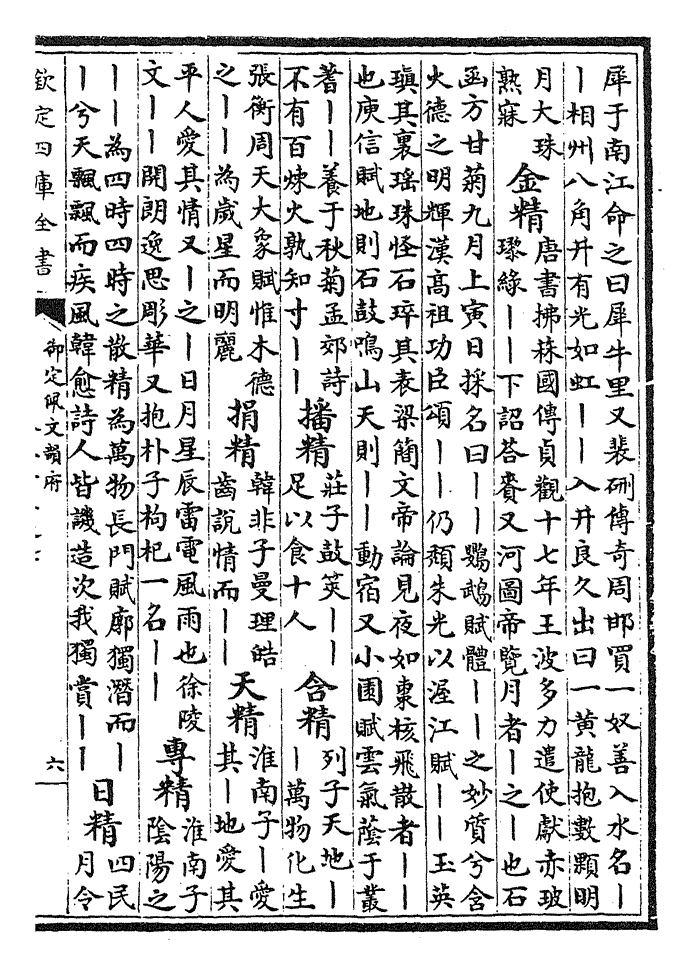 犀于南江命之曰犀牛里又裴硎傳奇周邯買一奴善入水名丨
丨相州八角井有光如虹丨丨入井良久出曰一黄龍抱數顆明
月大珠
熟寐
金精
唐書拂菻國傳貞觀十七年王波多力遣使獻赤玻
瓈綠丨丨下詔荅賚又河圖帝覽月者丨之丨也石
函方甘菊九月上寅日採名曰丨丨鸚鵡賦體丨丨之妙質兮含
火德之明輝漢高祖功臣頌丨丨仍頹朱光以渥江賦丨丨玉英
瑱其裏瑶珠怪石琗其表梁簡文帝論見夜如棗核飛散者丨丨
也庾信賦地則石鼓鳴山天則丨丨動宿又小園賦雲氣蔭于叢
蓍丨丨養于秋菊孟郊詩
不有百煉火孰知寸丨丨
播精
莊子鼓筴丨丨
足以食十人
含精
列子天地丨
丨萬物化生
張衡周天大象賦惟木德
之丨丨為歲星而明麗
捐精
韓非子曼理皓
齒說情而丨丨
天精
淮南子丨愛
其丨地愛其
平人愛其情又丨之丨日月星辰雷電風雨也徐陵
文丨丨開朗逸思彫華又抱朴子枸杞一名丨丨
專精
淮南子
陰陽之
丨丨為四時四時之散精為萬物長門賦廓獨潛而丨
丨兮天飄飄而疾風韓愈詩人皆譏造次我獨賞丨丨
日精
四民
月令
欽定四庫全書
御定佩文韻府
六